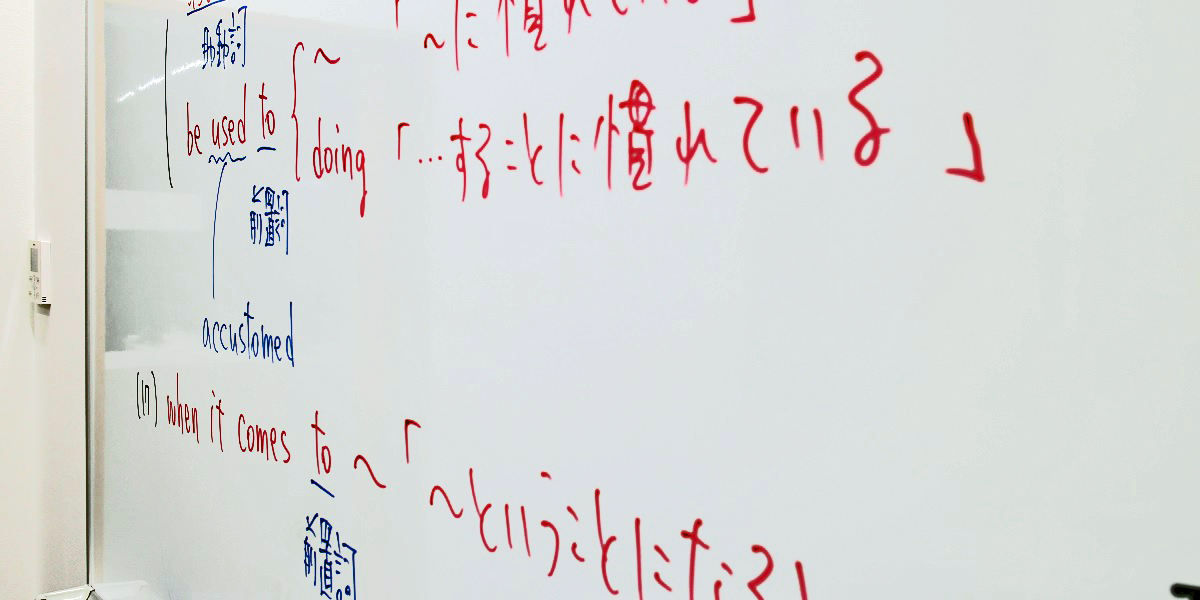 「~に慣れている」
助動詞
be used to { ~
doing 「…することに慣れている」
前置詞
accustomed
(17) when it comes to ~ 「~ということになる」
前置詞